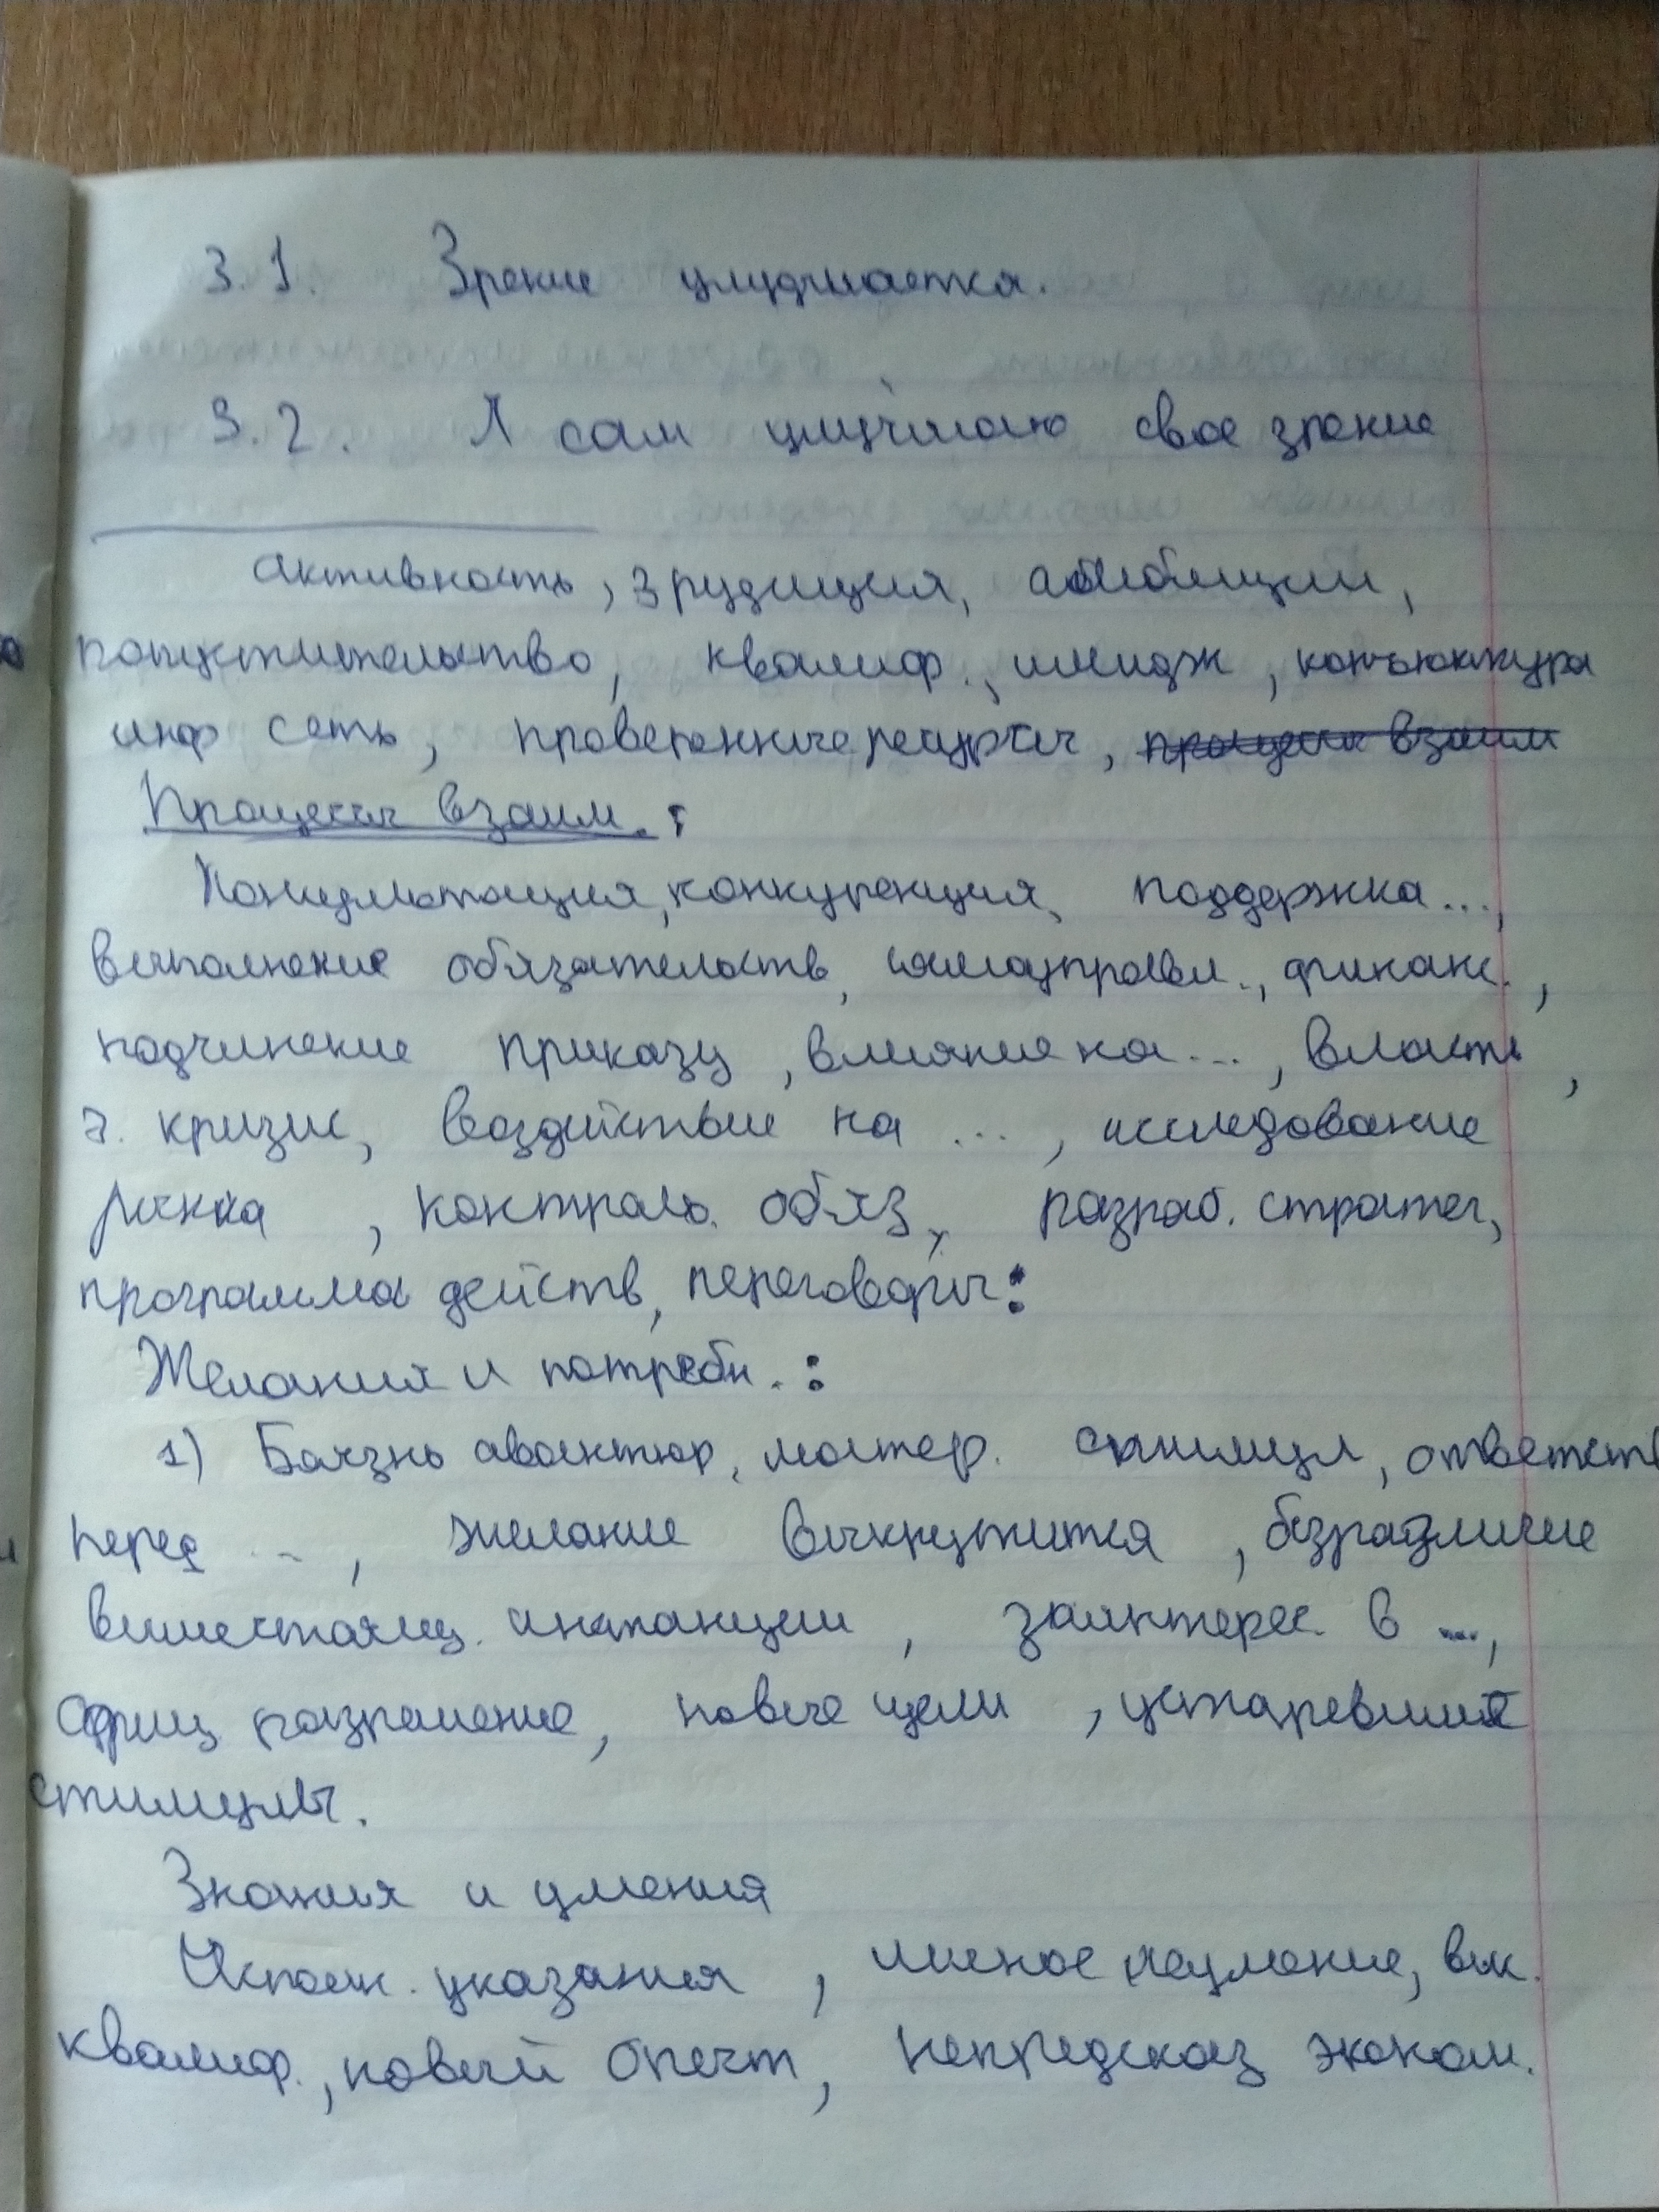 3.1. Зрение улучшается.
3.2. Я сам улучшаю свое зрение
активность, эрудиция, амбиции,
попустительство, квалиф., имидж, конъюктура
инф сеть, проверенные ресурсы, процессы взаим
Процессы взаим.:
Консультация, конкуренция, поддержка...,
выполнение обязательств, самоуправл., финанс.,
подчинение приказу, влияние на ..., власть,
э. кризис, воздействие на ..., исследование
рынка, контроль. обяз, разраб. стратег,
программа действ, переговоры:
Желания и потребн.:
1) Боязнь авантюр, матер. стимул, ответств
перед ..., желание выкрутится, безразличие
вышестоящ. инстанции, заинтерес. в ...,
офиц разрешение, новые цели, устаревшие
стимулы.
Знания и умения
Исполн. указания, личное неумение, выс.
квалиф., новый опыт, непредсказ эконом.